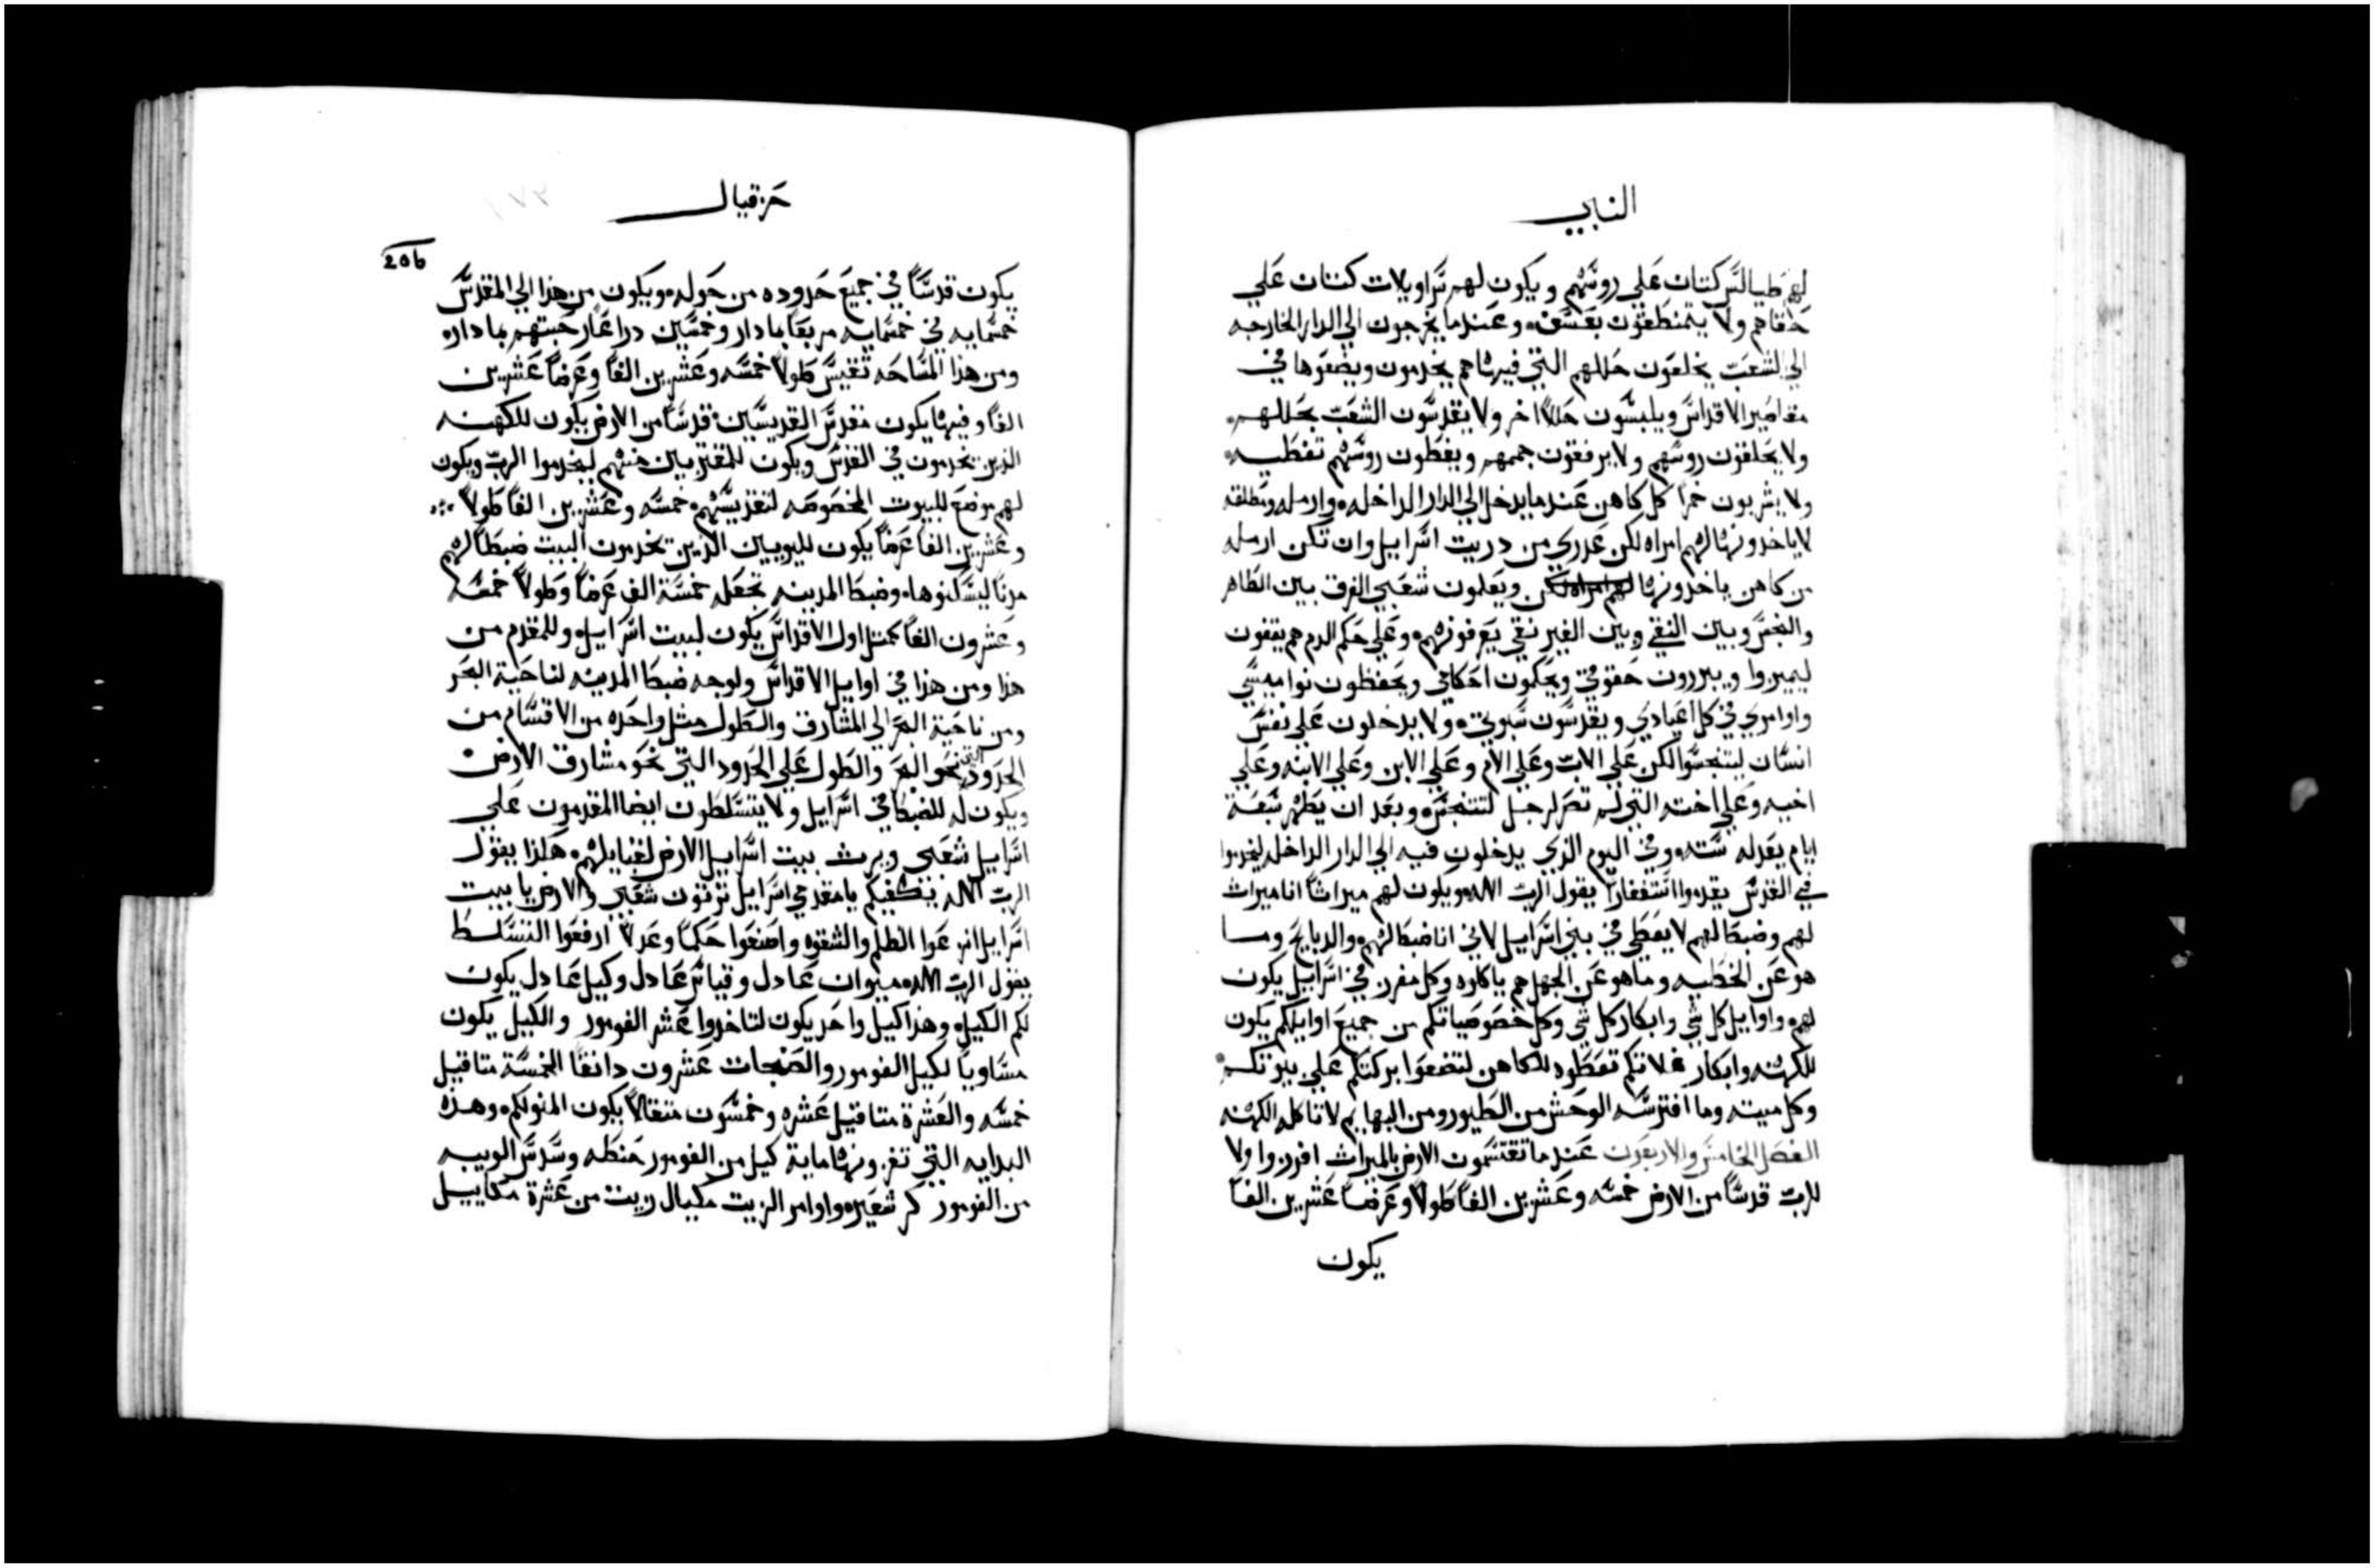 النبي
لهم طيالس كتان علي روسهم ويكون لهم سراويلات كتان علي
حقاهم ولا يتمنطقون بعسف وعندما يخرجون الي الدار الخارجه
الي الشعب يخلعون حللهم التي فيها هم يخدمون ويضعوها في
مقاصير الاقداس ويلبسون حللاً اخر ولا يقدسون الشعب بحللهم
ولا يحلقون روسهم ولا يرفعون جممهم ويغطون روسهم تغطيه
ولا يشربون خمراً كل كاهن عندما يدخل الي الدار الداخله وارمله ومطلقه
لا ياخدونها لهم امراه لكن عدري من دريت اسراييل وان تكن ارمله
من كاهن ياخدونها ويعلمون شعبي الفرق بين الطاهر
والنجس وبين النقي وبين الغير نقي يعرفونهم وعلي حكم الدم هم يقفون
ليميزوا ويبررون حقوقي ويحكمون احكامي ويحفظون نواميسي
واوامري في كل اعيادي ويقدسون سبوتي ولا يدخلون علي نفس
انسان ليتنجسوا لكن علي الاب وعلي الام وعلي الابن وعلي الابنه وعلي
اخيه وعلي اخته التي لم تصر لرجل لتتنجس وبعد ان يطهر سبعة
ايام يعدله سته وفي اليوم الذي يدخلون فيه الي الدار الداخله ليخدموا
في القدس يقدموا استغفاراً يقول الرب الاله ويكون لهم ميراثاً انا ميراث
لهم وضبطا لهم لا يعطي في بني اسراييل لاني انا ضبطا لهم والدبايح وما
هو عن الخطيه وما هو عن الجهل هم ياكلوه وكل مفرز في اسراييل يكون
لهم واوايل كل شي وابكار كل شي وكل خصوصياتكم من جميع اوايلكم يكون
للكهنه وابكار غلاتكم تعطوه للكاهن لتضعوا بركتكم علي بيوتكم
وكل ميته وما افترسه الوحش من الطيور ومن البهايم لا تاكله الكهنه
الفصل الخامس والاربعون عندما تقتسمون الارض بالميراث افرزوا ولا
للرب قدساً من الارض خمسه وعشرين الفاً طولاً وعرضاً عشرين الفاً
يكون
حزقيال
206
يكون قدساً في جميع حدوده من حوله ويكون من هذا الي المقدس
خمسمايه في خمسمايه مربعاً بما دار وخمسين دراعاً رحبتهم بما داره
ومن هذا المساحه تقيس طولاً خمسه وعشرين الفاً وعرضاً عشرين
الفاً وفيها يكون مقدس القديسين قدساً من الارض يكون للكهنه
الذين يخدمون في القدس ويكون للمقتربين منهم ليخدموا الرب ويكون
لهم موضع للبيوت المخصوصه لتقديسهم خمسه وعشرين الفاً طولاً
وعشرين الفاً عرضاً يكون لليوبيين الذين يخدمون البيت ضبطا لهم
مدناً ليسكنوها وضبطا المدينه تجعل خمسة الف عرضاً وطولاً خمسه
وعشرون الفاً كمثل اول الاقداس يكون لبيت اسراييل وللمقدم من
هذا ومن هذا في اوايل الاقداس ولوجه ضبطا المدينه لناحية البحر
ومن ناحية البحر الي المشارق والطول مثل واحده من الاقسام من
الحدود التي نحو البحر والطول علي الحدود التي نحو مشارق الارض
ويكون له للضبطا في اسراييل ولا يتسلطون ايضا المقدمون علي
اسراييل شعبي ويرث بيت اسراييل الارض لقبايلهم هكذا يقول
الرب الاله يكفيكم يا مقدمي اسراييل ترثون شعبي والارض يا بيت
اسراييل انزعوا الظلم والشقوه واصنعوا حكماً وعدلاً ارفعوا التسلط
يقول الرب الاله ميزان عادل وقياس عادل وكيل عادل يكون
لكم الكيل وهذا كيل واحد يكون لتاخدوا عشر الغومور والكيل يكون
مساوياً لكيل الغومور والصنجات عشرون دانقاً الخمسة متاقيل
خمسه والعشرة متاقيل عشره وخمسون متقالاً يكون المنولكم وهذه
البدايه التي تفرزونها ماية كيل من الغومور حنطه وسدس الويبه
من الغومور كر شعيره واوامر الزيت مكيال زيت من عشرة مكاييل